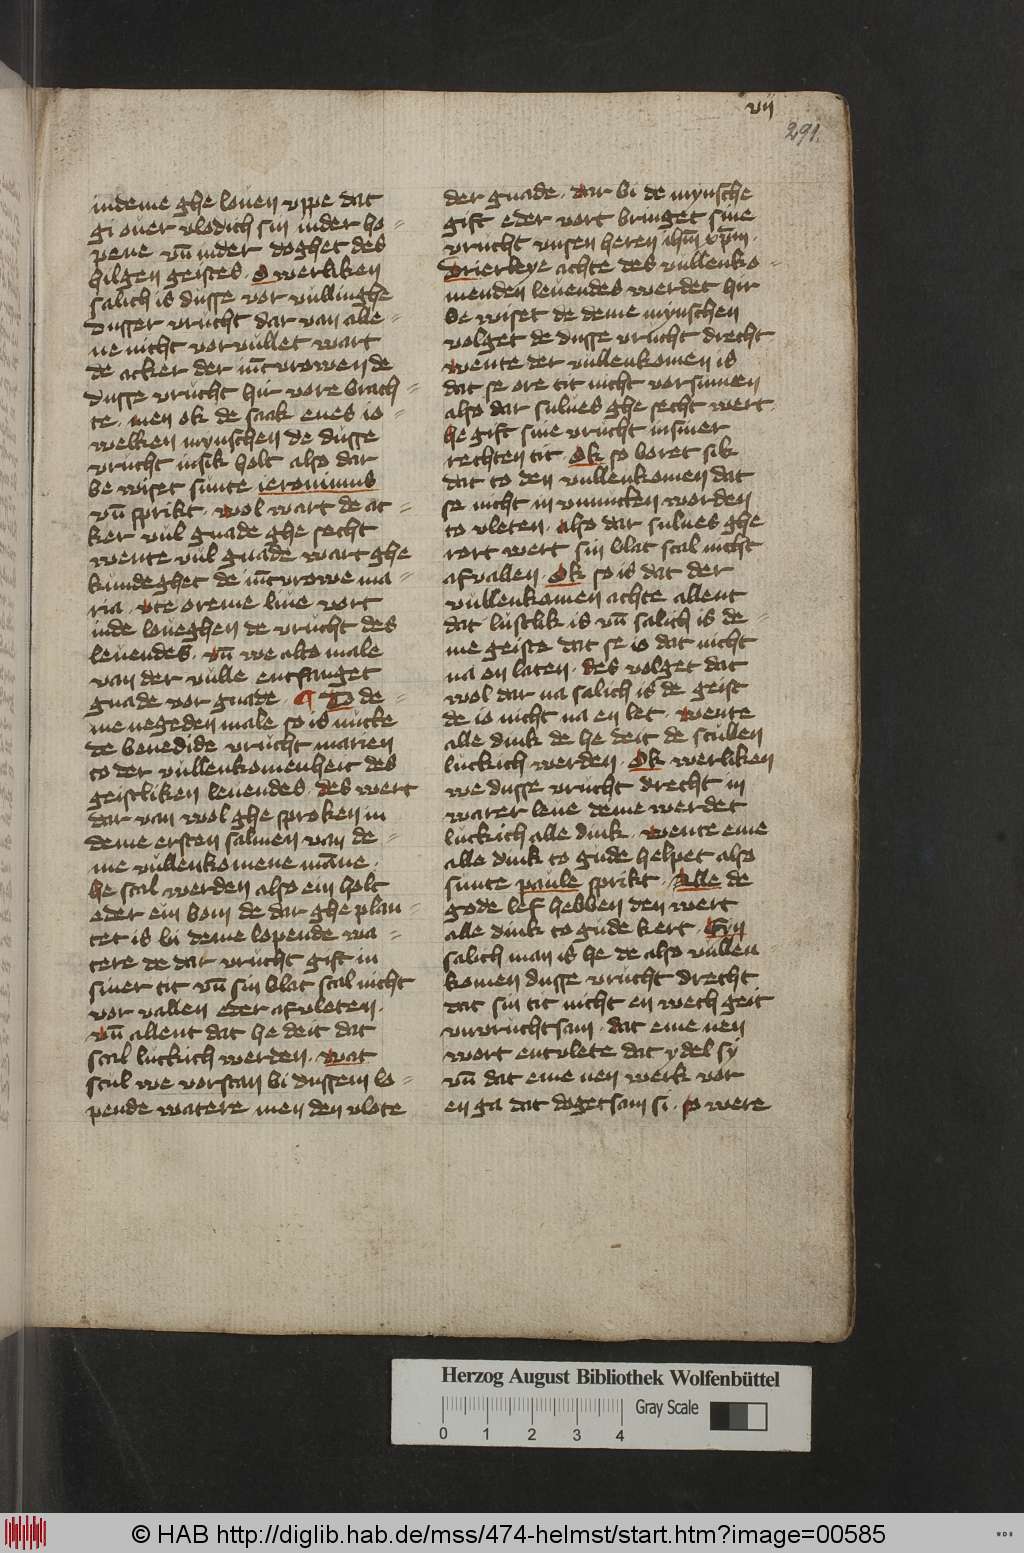 vij
291.
indeme ghe louen vppe dat
gi ouer vlodich sin inder ho=
pene vn̄ inder doghet des
hilgen geistes. O werliken
salich is dusse vor vullinghe
dusser vrucht dar van alle=
ne nicht vorvullet wart
de acker der iūcvrowen de
dusse vrucht hir vore brach=
te. men ok de saak enes io=
welken mynschen de dusse
vrucht insik holt also dar
be wiset sunte ieronimus
vn̄ sprikt. wol wart de ac=
ker vul gnade ghe secht
wente vul gnade wart ghe
kundeghet de iūcvrowe ma=
ria. vte oreme liue vort
inde loueghen de vrucht des
leuendes. vn̄ we alto male
van der vulle entfanget
gnade vor gnade. ¶ To de=
me negeden male so is nucke
de benedide vrucht marien
to der vullenkomenheit des
geistliken leuendes. des wert
dar van wol ghe sproken in
deme ersten salmen van de=
me vullenkomene māne.
he scal werden also ein holt
eder ein bom de dar ghe plan=
tet is bi deme lopende wa=
tere de dar vrucht gift in
siner tit vn̄ sin blat scal nicht
vor vallen eder af vleten.
vn̄ allent dat he deit dat
scal luckich werden. wat
scul we vorstan bi dussem lo=
pende watere men den vlote
der gnade. dar bi de mynsche
gift eder vort bringet sine
vrucht vnsen heren ihm̄ xp̄m.
Drierleye achte des vullenko=
menden leuendes werdet hir
be wiset de deme mynschen
volget de dusse vrucht drecht
wente der vullenkomen is
dat se ore tit nicht vorsumen
also dar sulues ghe secht wert.
he gift sine vrucht insiner
rechten tit. Ok so boret sik
dat to den vullenkomen dat
se nicht in vnnucken worden
to vleten. also dar sulues ghe
rort wert sin blat scal nicht
afvallen. Ok so is dat der
vullenkomen achte allent
dat lustlik is vn̄ salich is de=
me geiste dat se io dat nicht
na en laten. des volget dat
wol dar na salich is de geist
de io nicht na en let. wente
alle dink de he deit de scullen
luckich werden. Ok werliken
we dusse vrucht drecht in
warer leue deme werdet
luckich alle dink. wente eme
alle dink to gude helpet also
sunte paule sprikt. Alle de
gode lef hebben den wert
alle dink to gude kert. Eyn
salich man is he de also vullen
komen dusse vrucht drecht
dat sin tit nicht en wech geit
vnvruchtsam. dat eme nen
wort entvlete dat ydel sy
vn̄ dat eme nen werk vor
en ga dat dogetsam si. so were
Herzog August Bibliothek Wolfenbüttel
0 1 2 3 4
Gray Scale
© HAB http://diglib.hab.de/mss/474-helmst/start.htm?image=00585